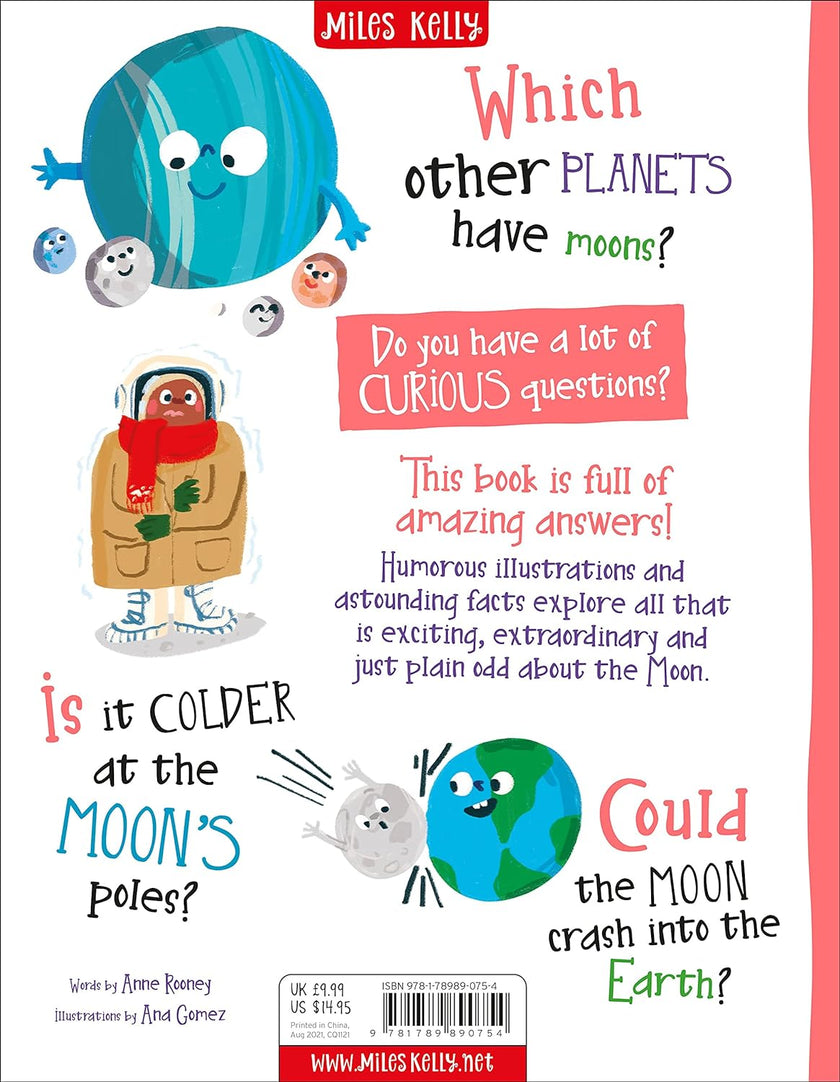 MiLES KELLY
Which
other PLANETS
have moons?
Do you have a lot of
CURiOUS questions?
This book is full of
amazing answers!
Humorous illustrations and
astounding facts explore all that
is exciting, extraordinary and
just plain odd about the Moon.
is it COLDER
at the
MOON'S
poles?
Could
the MOON
crash into the
Earth?
Words by Anne Rooney
illustrations by Ana Gomez
UK £9.99
US $14.95
Printed in China,
Aug 2021, CQ1121
ISBN 978-1-78989-075-4
9 781789 890754
www.MiLesKeLLy.net